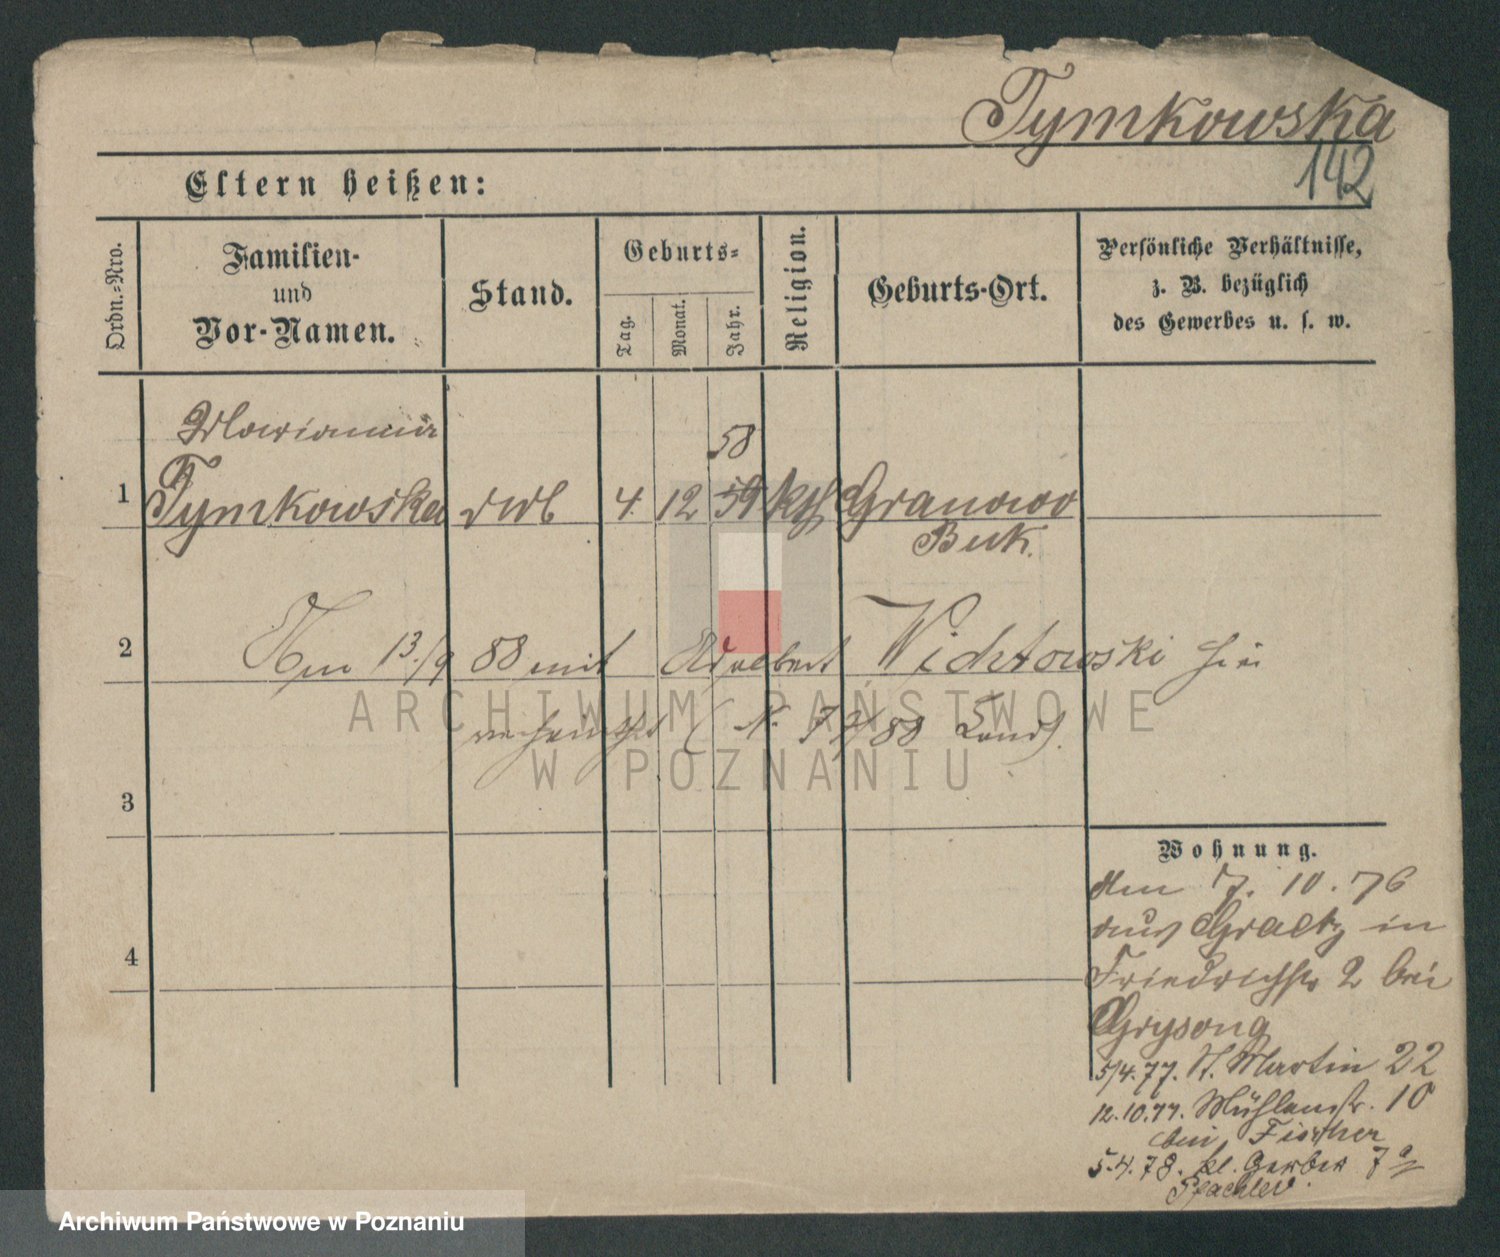 Tymkowska
142
Eltern heißen:
Ordn.-Nro.
Familien-
und
Vor-Namen.
Stand.
Geburts-
Tag.
Monat.
Jahr.
Religion.
Geburts-Ort.
Persönliche Verhältnisse,
z. B. bezüglich
des Gewerbes u. s. w.
Marianna
58
1 Tymkowska 4. 12 59 kth Granowo
Buk.
2 Am 13./9 88 mit Adalbert hier
verheirathet ( N. 88 Land).
3
4
Wohnung.
Am 7. 10. 76
aus Graetz in
Friedrichstr 2 bei
Grysong
5/4. 77. St. Martin 22
12. 10. 77. Mühlenstr. 10
bei Fischer
5. 4. 78. kl. Gerber 7a
ARCHIWUM PAŃSTWOWE
W POZNANIU
Archiwum Państwowe w Poznaniu